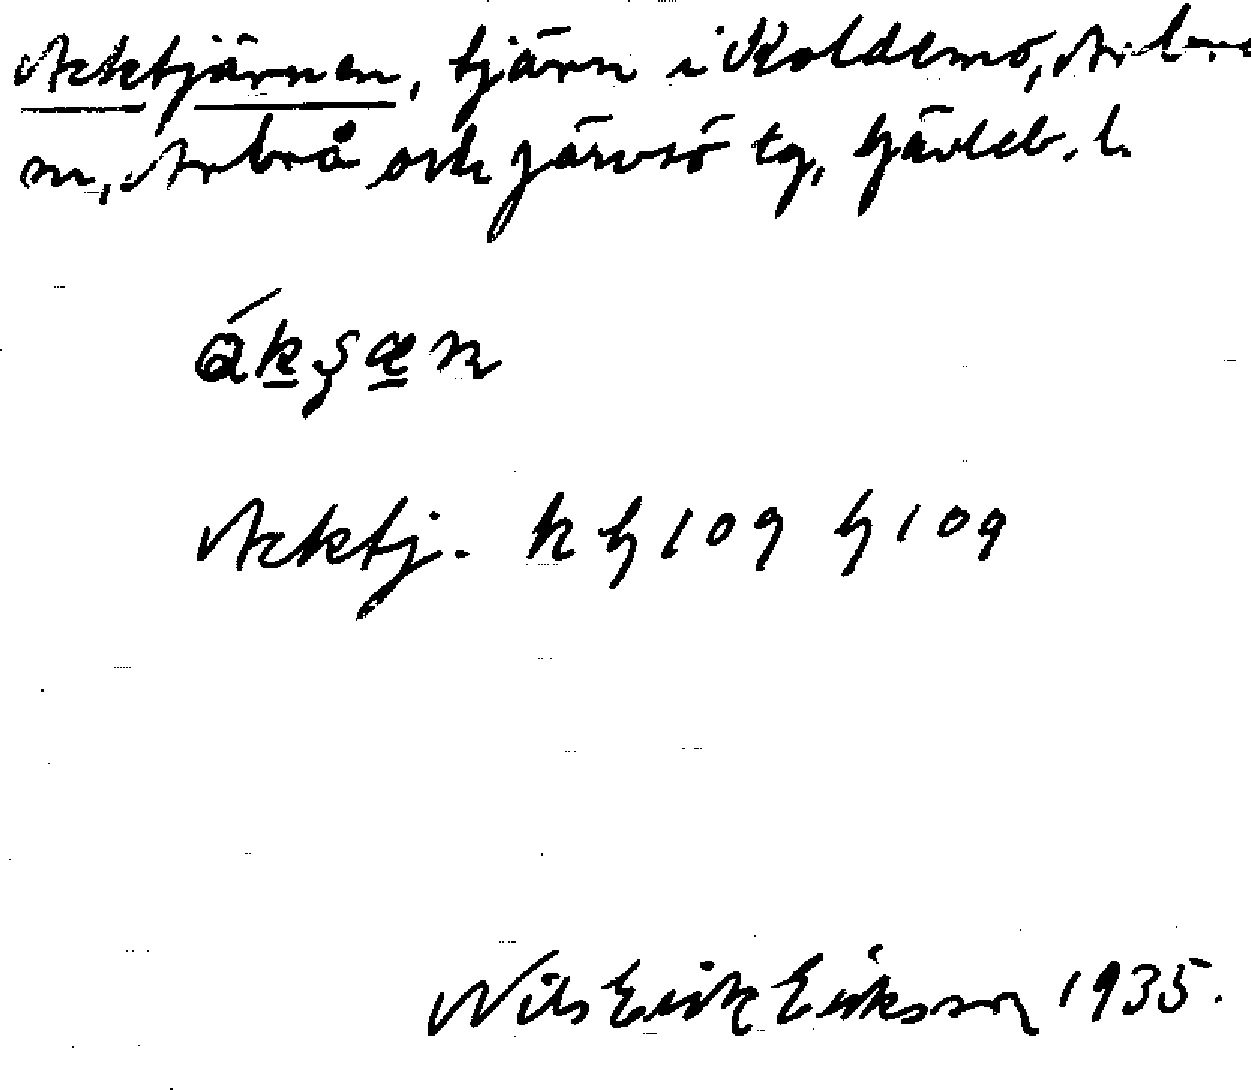 Acktjärnen, tjärn i Koldemo, Arbrå
sn, Arbrå och Järvsö tg, Gävleb. l.
ákʂæn
Acktj. k h 109 h 109
Nils Erik Eriksson 1935.